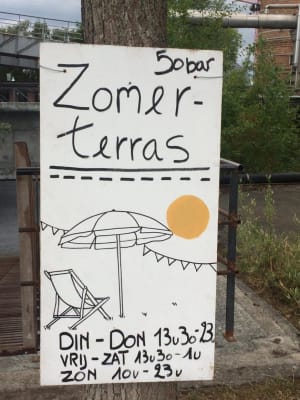 50bar
Zomer-
terras
DIN - DON 13u30-23u
VRIJ - ZAT 13u30-1u
ZON 10u-23u